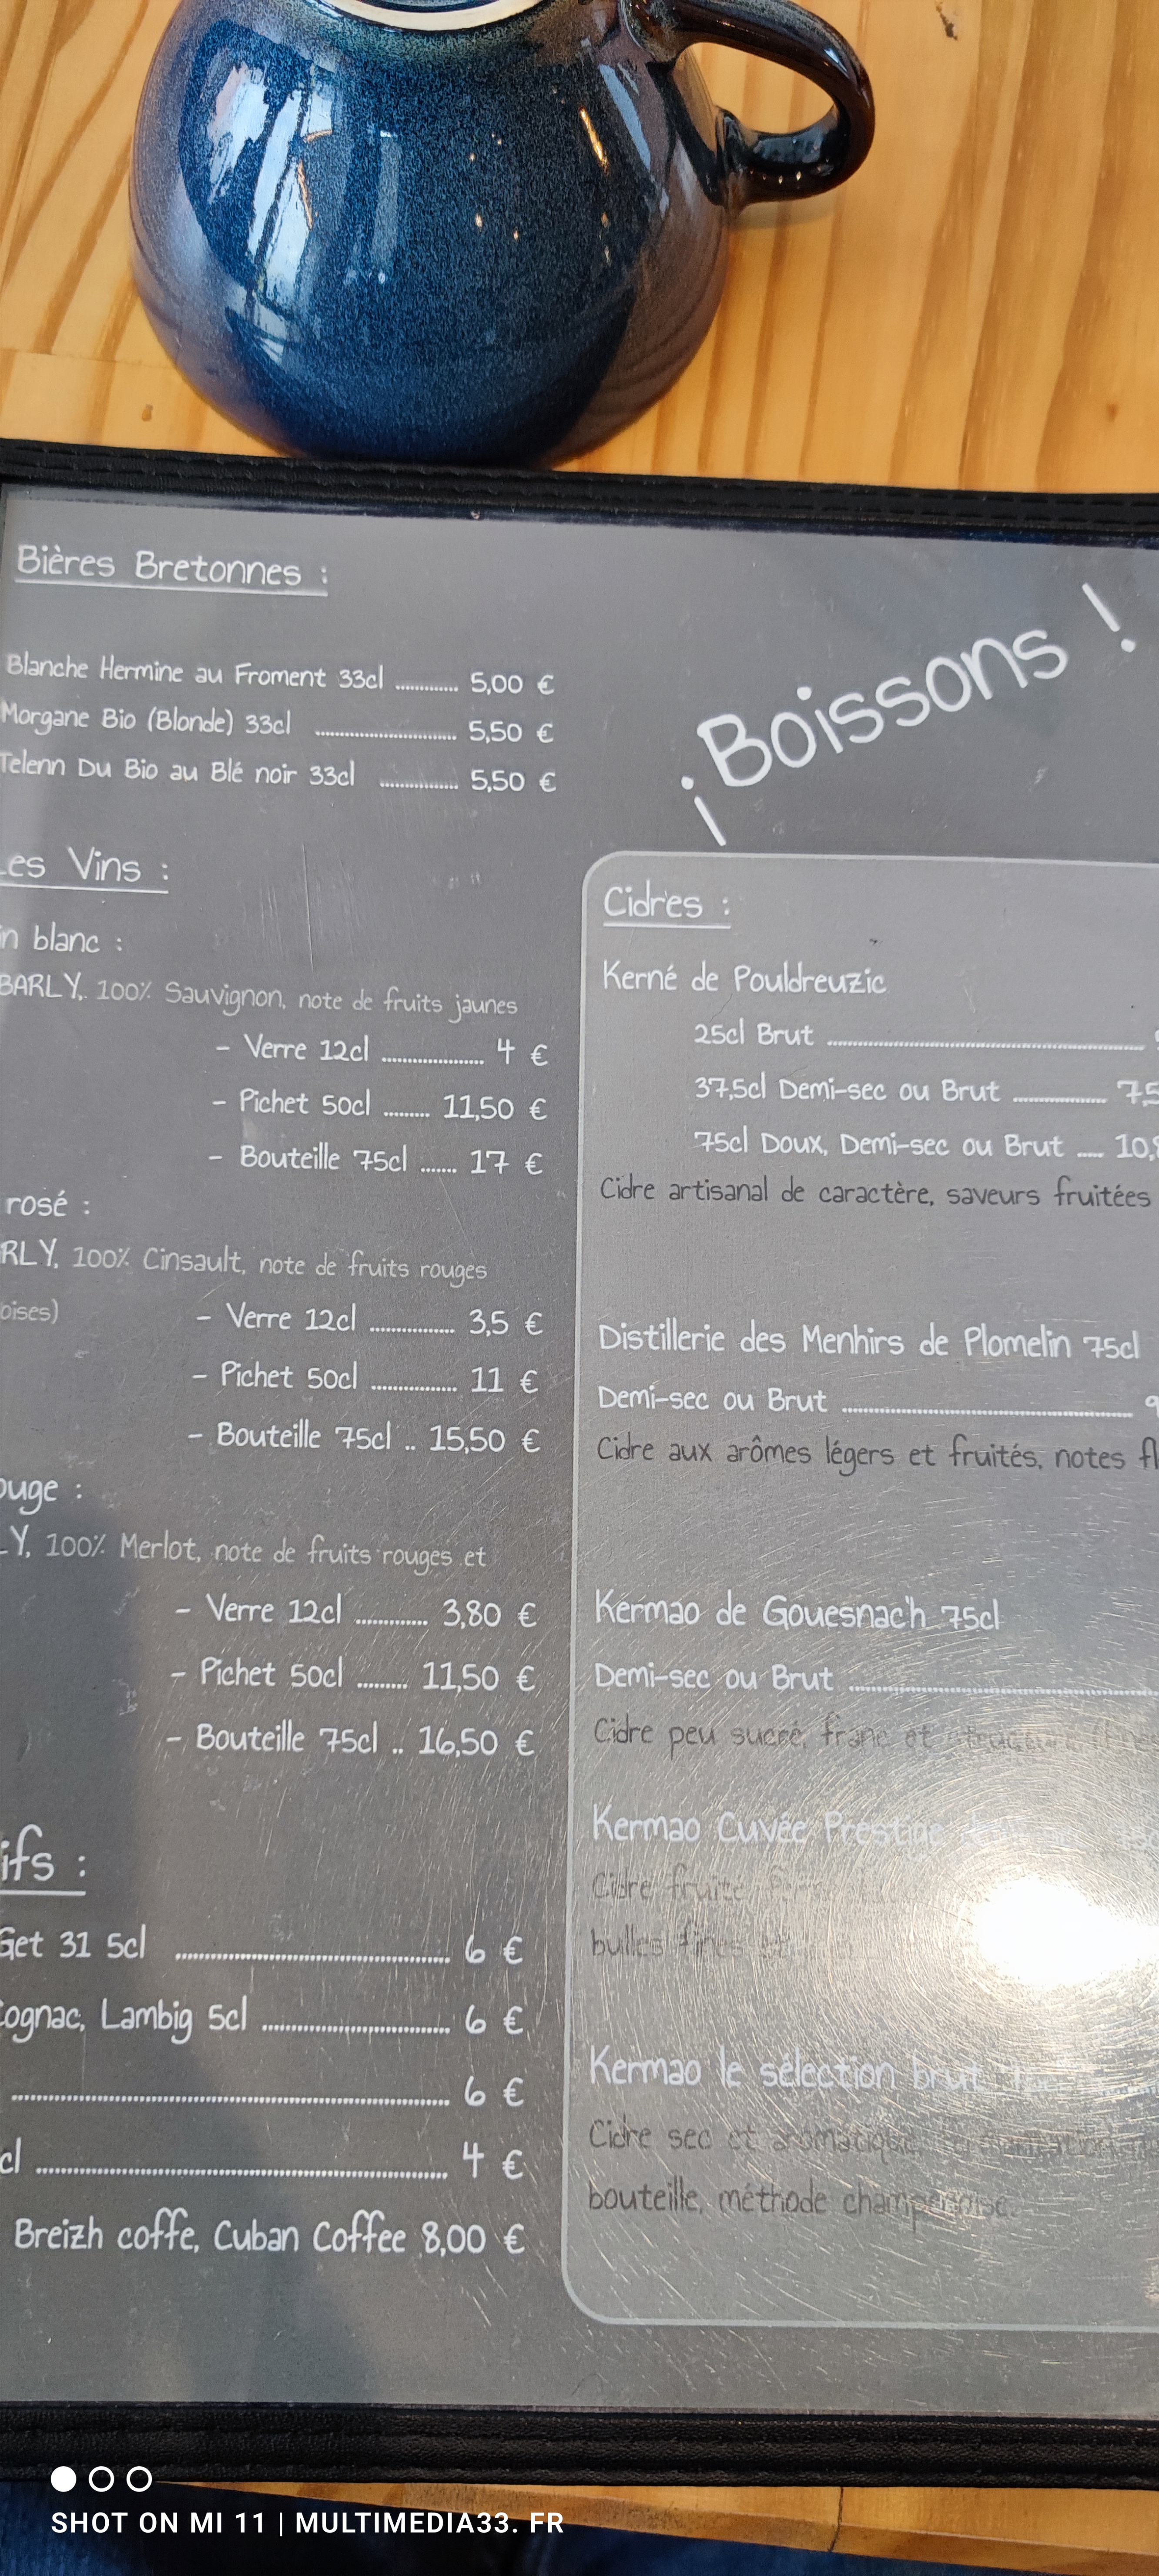 Bières Bretonnes :
Blanche Hermine au Froment 33cl ............ 5,00 €
Morgane Bio (Blonde) 33cl ............ 5,50 €
Telenn Du Bio au Blé noir 33cl ............ 5,50 €
¡Boissons !
Les Vins :
in blanc :
BARLY, 100% Sauvignon, note de fruits jaunes
- Verre 12cl ............ 4 €
- Pichet 50cl ......... 11,50 €
- Bouteille 75cl ....... 17 €
rosé :
RLY, 100% Cinsault, note de fruits rouges
oises)
- Verre 12cl ............ 3,5 €
- Pichet 50cl ............ 11 €
- Bouteille 75cl .. 15,50 €
ouge :
LY, 100% Merlot, note de fruits rouges et
- Verre 12cl ............ 3,80 €
- Pichet 50cl ......... 11,50 €
- Bouteille 75cl .. 16,50 €
ifs :
Get 31 5cl ............ 6 €
Cognac, Lambig 5cl ............ 6 €
............ 6 €
cl ............ 4 €
Breizh coffe, Cuban Coffee 8,00 €
Cidres :
Kerné de Pouldreuzic
25cl Brut ............
37,5cl Demi-sec ou Brut ............ 7,5
75cl Doux, Demi-sec ou Brut ..... 10,
Cidre artisanal de caractère, saveurs fruitées
Distillerie des Menhirs de Plomelin 75cl
Demi-sec ou Brut ............ 9
Cidre aux arômes légers et fruités, notes fl
Kermao de Gouesnac'h 75cl
Demi-sec ou Brut ............
Cidre peu sucré, franc et
Kermao Cuvée Prestige
Cidre fruité
bulles fines
Kermao le sélection brut
Cidre sec et aromatique,
bouteille, méthode champenoise.
SHOT ON MI 11 | MULTIMEDIA33. FR